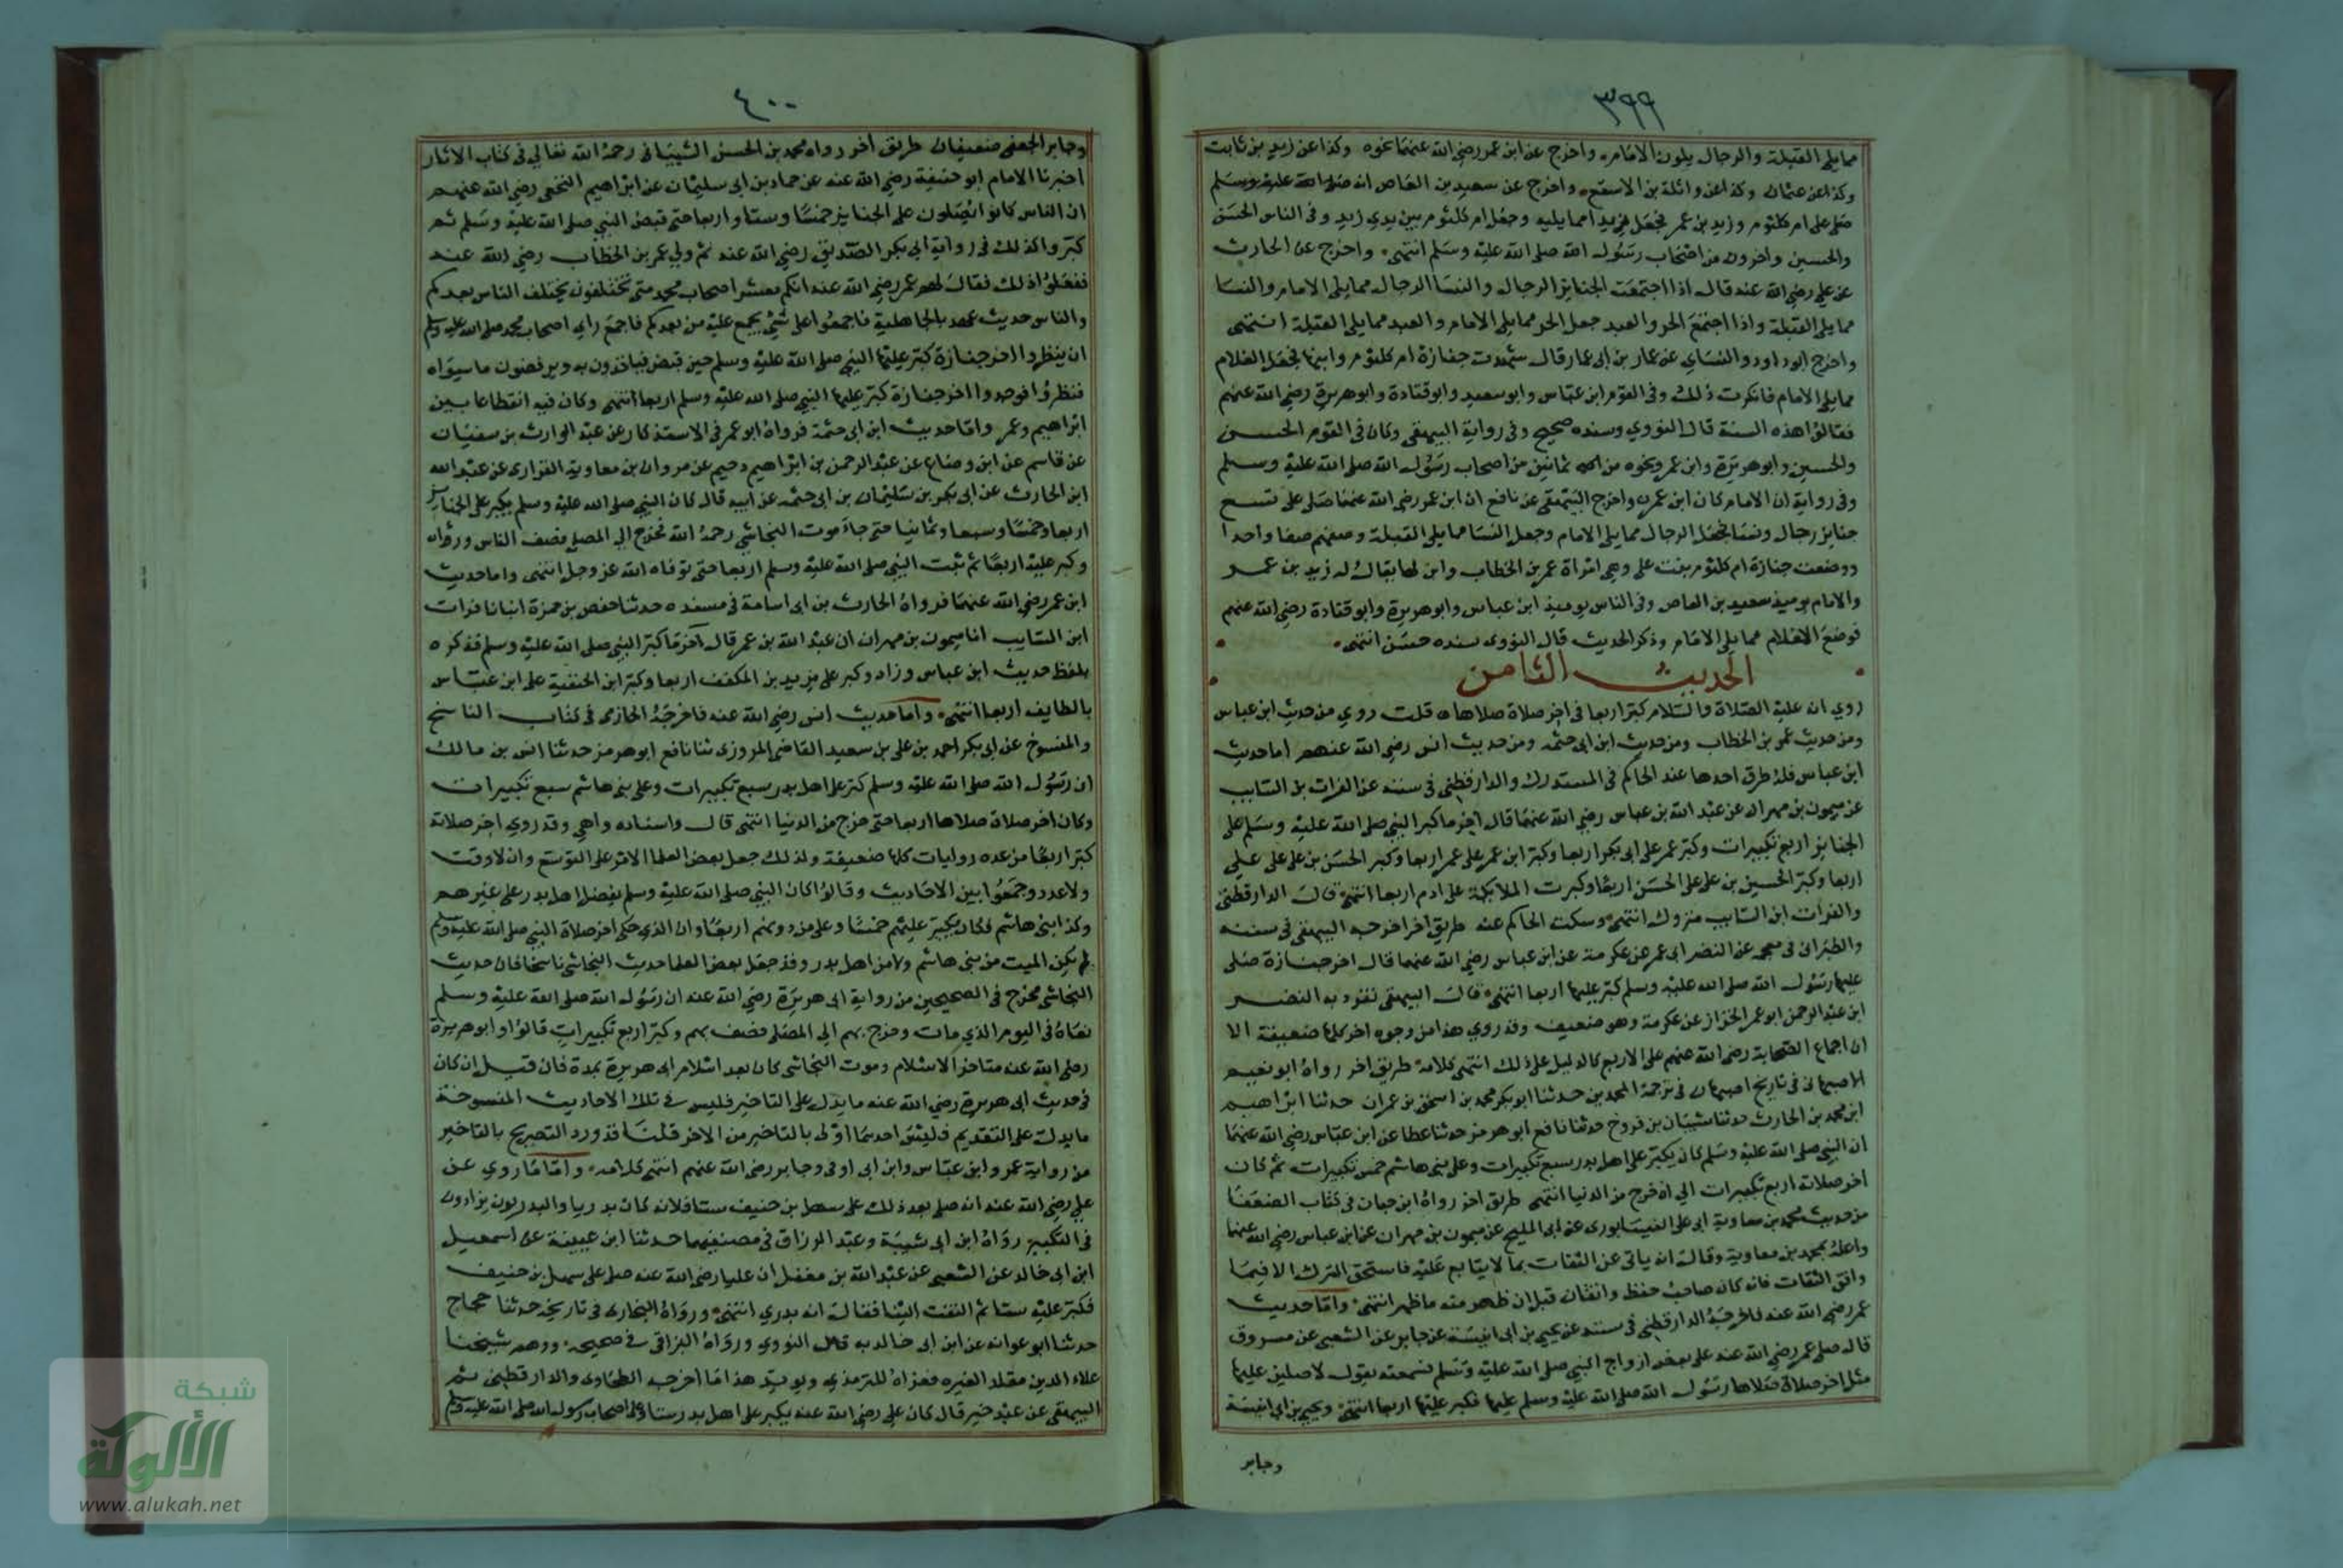 ٣٩٩
مما يلي القبلة والرجال يلون الامام واخرج عن ابن عمر رضي الله عنهما نحوه وكذا عن زيد بن ثابت
وكذا عن عثمان وكذا عن واثلة بن الاسقع واخرج عن سعيد بن العاص انه صلى
صلى على ام كلثوم وزيد بن عمر فجعل زيدا مما يليه وجعل ام كلثوم بين يدي زيد وفي الناس الحسن
والحسين واخرون من اصحاب رسول الله صلى الله عليه وسلم انتهى واخرج عن الحارث
عن علي رضي الله عنه قال اذا اجتمعت الجنايز الرجال والنسا الرجال مما يلي الامام والنسا
مما يلي القبلة واذا اجتمع الحر والعبد جعل الحر مما يلي الامام والعبد مما يلي القبلة انتهى
واخرج ابو داود والنساي عن عمار بن ابي عمار قال شهدت جنازة ام كلثوم وابنها فجعل الغلام
مما يلي الامام فانكرت ذلك وفي القوم ابن عباس وابو سعيد وابو قتادة وابو هريرة رضي الله عنهم
فقالوا هذه السنة قال النووي وسنده صحيح وفي رواية البيهقي وكان في القوم الحسن
والحسين وابو هريرة وابن عمر ونحوه من ثمانين من اصحاب رسول الله صلى الله عليه وسلم
وفي رواية ان الامام كان ابن عمر واخرج البيهقي عن نافع ان ابن عمر رضي الله عنهما صلى على تسع
جنايز رجال ونسا فجعل الرجال مما يلي الامام وجعل النسا مما يلي القبلة وصفهم صفا واحدا
ووضعت جنازة ام كلثوم بنت علي وهي امراة عمر بن الخطاب وابن لها يقال له زيد بن عمر
والامام يوميذ سعيد بن العاص وفي الناس يوميذ ابن عباس وابو هريرة وابو قتادة رضي الله عنهم
فوضع الغلام مما يلي الامام وذكر الحديث قال النووي سنده حسن انتهى
الحديث الثامن
روي ان عليه الصلاة والسلام كبر اربعا في اخر صلاة صلاها قلت روي من حديث ابن عباس
ومن حديث عمر بن الخطاب ومن حديث ابن ابي حثمه ومن حديث انس رضي الله عنهم اما حديث
ابن عباس فله طرق احدها عند الحاكم في المستدرك والدارقطني في سننه عن الفرات بن السايب
عن ميمون بن مهران عن عبد الله بن عباس رضي الله عنهما قال اخر ما كبر النبي صلى الله عليه وسلم على
الجنايز اربع تكبيرات وكبر عمر على ابي بكر اربعا وكبر ابن عمر على عمر اربعا وكبر الحسن بن علي على علي
اربعا وكبر الحسين بن علي على الحسن اربعا وكبرت الملايكة على ادم اربعا انتهى قال الدارقطني
والفرات ابن السايب متروك انتهى وسكت الحاكم عنه طريق اخر اخرجه البيهقي في سننه
والطبراني في معجمه عن النضر ابي عمر عن عكرمة عن ابن عباس رضي الله عنهما قال اخر جنازة صلى
عليها رسول الله صلى الله عليه وسلم كبر عليها اربعا انتهى قال البيهقي تفرد به النضر
ابن عبد الرحمن ابو عمر الخزاز عن عكرمة وهو ضعيف وقد روي هذا من وجوه اخر كلها ضعيفة الا
ان اجماع الصحابة رضي الله عنهم على الاربع كالدليل على ذلك انتهى كلامه طريق اخر رواه ابو نعيم
الاصبهاني في تاريخ اصبهان في ترجمة المحمدين حدثنا ابو بكر محمد بن اسحق بن عمران حدثنا ابراهيم
ابن محمد بن الحارث حدثنا شيبان بن فروخ حدثنا نافع ابو هرمز حدثنا عطا عن ابن عباس رضي الله عنهما
ان النبي صلى الله عليه وسلم كان يكبر على اهل بدر سبع تكبيرات وعلى بني هاشم خمس تكبيرات ثم كان
اخر صلاته اربع تكبيرات الي ان خرج من الدنيا انتهى طريق اخر رواه ابن حبان في كتاب الضعفا
من حديث محمد بن معاوية ابي علي النيسابوري عن ابي المليح عن ميمون بن مهران عن ابن عباس رضي الله عنهما
واعله بمحمد بن معاوية وقال انه ياتي عن الثقات بما لا يتابع عليه فاستحق الترك الا فيما
وافق الثقات فانه كان صاحب حفظ واتقان قبل ان ظهر منه ما ظهر انتهى واما حديث
عمر رضي الله عنه فاخرجه الدارقطني في سننه عن يحيى بن ابي انيسة عن جابر عن الشعبي عن مسروق
قال صلى عمر رضي الله عنه على بعض ازواج النبي صلى الله عليه وسلم فسمعته يقول لاصلين عليها
مثل اخر صلاة صلاها رسول الله صلى الله عليه وسلم عليها فكبر عليها اربعا انتهى ويحيى بن ابي انيسة
وجابر
٤٠٠
وجابر الجعفي ضعيفان طريق اخر رواه محمد بن الحسن الشيباني رحمه الله تعالي في كتاب الاثار
اخبرنا الامام ابو حنيفة رضي الله عنه عن حماد بن ابي سليمان عن ابراهيم النخعي رضي الله عنهم
ان الناس كانوا يصلون على الجنايز خمسا وستا واربعا حتى قبض النبي صلى الله عليه وسلم ثم
كبروا كذلك في رواية ابي بكر الصديق رضي الله عنه ثم ولي عمر بن الخطاب رضي الله عنه
ففعلوا ذلك فقال لهم عمر رضي الله عنه انكم معشر اصحاب محمد متى تختلفون يختلف الناس بعدكم
والناس حديث عهد بالجاهلية فاجمعوا على شي يجمع عليه من بعدكم فاجمع راي اصحاب محمد صلى الله عليه وسلم
ان ينظروا اخر جنازة كبر عليها النبي صلى الله عليه وسلم حين قبض فياخذون به ويرفضون ما سواه
فنظروا فوجدوا اخر جنازة كبر عليها النبي صلى الله عليه وسلم اربعا انتهى وكان فيه انقطاعا بين
ابراهيم وعمر واما حديث ابن ابي حثمة فرواه ابو عمر في الاستذكار عن عبد الوارث بن سفيان
عن قاسم عن ابن وضاح عن عبد الرحمن بن ابراهيم دحيم عن مروان بن معاوية الفزاري عن عبد الله
ابن الحارث عن ابي بكر بن سليمان بن ابي حثمه عن ابيه قال كان النبي صلى الله عليه وسلم يكبر على الجنايز
اربعا وخمسا وسبعا وثمانيا حتى جاء موت النجاشي رحمه الله فخرج الي المصلى فصف الناس وراه
وكبر عليه اربعا ثم ثبت النبي صلى الله عليه وسلم اربعا حتى توفاه الله عز وجل انتهى واما حديث
ابن عمر رضي الله عنهما فرواه الحارث بن ابي اسامة في مسنده حدثنا حفص بن حمزة انبانا فرات
ابن السايب انا ميمون بن مهران ان عبد الله بن عمر قال اخر ما كبر النبي صلى الله عليه وسلم فذكره
بلفظ حديث ابن عباس وزاد وكبر على يزيد بن المكفف اربعا وكبر ابن الحنفية على ابن عباس
بالطايف اربعا انتهى واما حديث انس رضي الله عنه فاخرجه الحازمي في كتاب الناسخ
والمنسوخ عن ابي بكر احمد بن علي بن سعيد القاضي المروزي ثنا نافع ابو هرمز حدثنا انس بن مالك
ان رسول الله صلى الله عليه وسلم كبر على اهل بدر سبع تكبيرات وعلى بني هاشم سبع تكبيرات
وكان اخر صلاة صلاها اربعا حتى خرج من الدنيا انتهى قال واسناده واهي وقد روي اخر صلاة
كبر اربعا من عده روايات كلها ضعيفة ولذلك جعل بعض العلما الامر على التوسع وان لا وقت
ولا عدد وجمعوا بين الاحاديث وقالوا كان النبي صلى الله عليه وسلم يفضل اهل بدر على غيرهم
وكذا بني هاشم فكان يكبر عليهم خمسا وعلى من دونهم اربعا وان الذي حكى اخر صلاة النبي صلى الله عليه وسلم
لم يكن الميت من بني هاشم ولا من اهل بدر وقد جعل بعض العلما حديث النجاشي ناسخا فان حديث
النجاشي مخرج في الصحيحين من رواية ابي هريرة رضي الله عنه ان رسول الله صلى الله عليه وسلم
نعاه في اليوم الذي مات وخرج بهم الي المصلى فصف بهم وكبر اربع تكبيرات قالوا وابو هريرة
رضي الله عنه متاخر الاسلام وموت النجاشي كان بعد اسلام ابي هريرة بمدة فان قيل ان كان
في حديث ابي هريرة رضي الله عنه ما يدل على التاخير فليس في تلك الاحاديث المنسوخة
ما يدل على التقديم فليس احدهما اولى بالتاخير من الاخر قلنا قد ورد التصريح بالتاخير
من رواية عمر وابن عباس وابن ابي اوفى وجابر رضي الله عنهم انتهى كلامه واما ما روي عن
علي رضي الله عنه انه صلى بعد ذلك على سهل بن حنيف ستا فلانه كان بدريا والبدريون يزادون
في التكبير رواه ابن ابي شيبة وعبد الرزاق في مصنفيهما حدثنا ابن عيينة عن اسمعيل
ابن ابي خالد عن الشعبي عن عبد الله بن مغفل ان عليا رضي الله عنه صلى على سهل بن حنيف
فكبر عليه ستا ثم التفت الينا فقال انه بدري انتهى ورواه البخاري في تاريخه حدثنا حجاج
حدثنا ابو عوانه عن ابن ابي خالد به قال النووي ورواه البراقي في صحيحه ووهم شيخنا
علاء الدين مقلد الغيره فعزاه للترمذي ويويد هذا ما اخرجه الطحاوي والدارقطني ثم
البيهقي عن عبد خير قال كان علي رضي الله عنه يكبر على اهل بدر ستا وعلى اصحاب رسول الله صلى الله عليه وسلم
شبكة
الألوكة
www.alukah.net